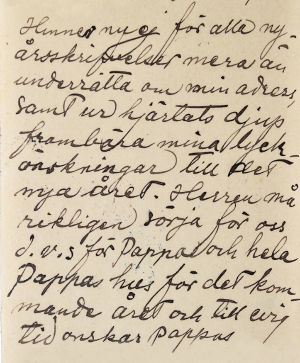 Hinner nu ej för alla ny-
årsskrifvelser mera än
underrätta om min adress,
samt ur hjärtats djup
frambära mina lyck-
önskningar till det
nya året. Herren må
rikligen sörja för oss
d.v.s för Pappa och hela
Pappas hus för det kom-
mande året och till evig
tid önskar Pappas